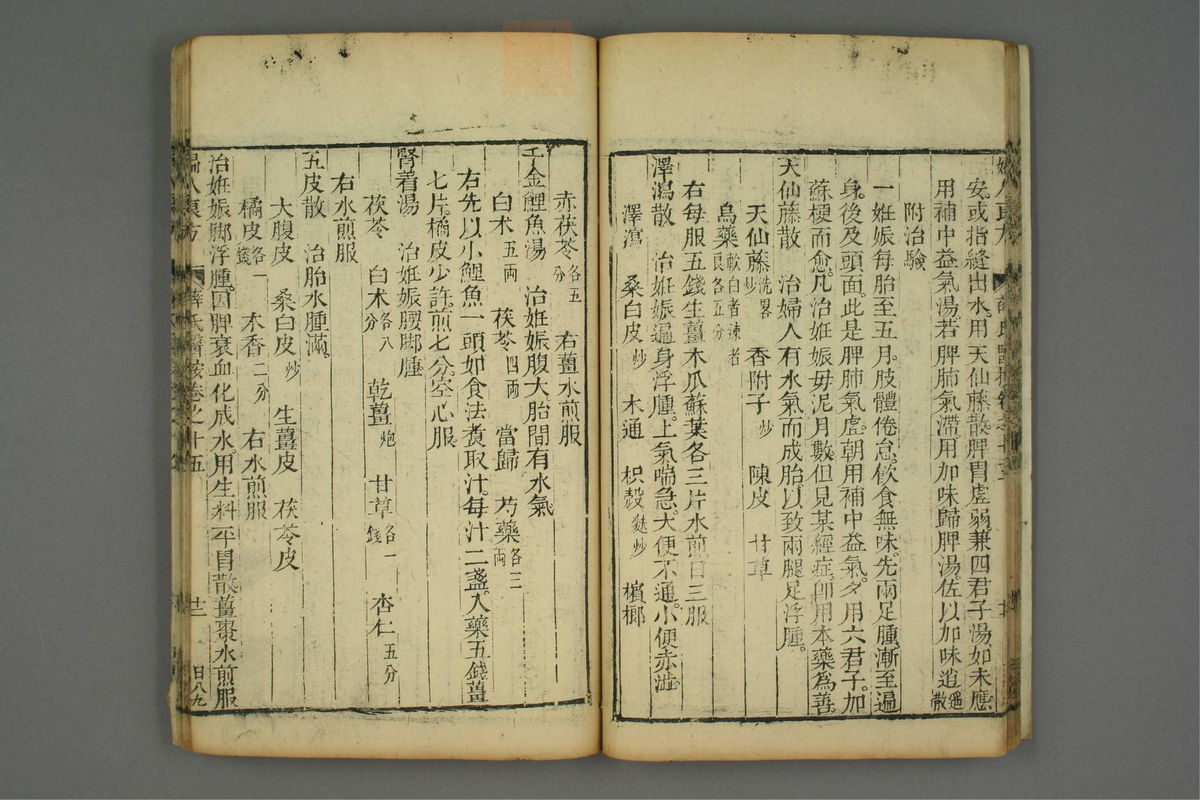 安。或指縫出水。用天仙藤散。脾胃虛弱。兼四君子湯。如未應。
用補中益氣湯。若脾肺氣滯。用加味歸脾湯。佐以加味逍遙散
附治驗
一妊娠每胎至五月。肢體倦怠。飲食無味。先兩足腫。漸至遍
身。後及頭面。此是脾肺氣虛。朝用補中益氣。夕用六君子。加
蘇梗而愈。凡治妊娠毋泥月數。但見某經症。卽用本藥爲善。
天仙藤散 治婦人有水氣而成胎。以致兩腿足浮腫。
天仙藤洗畧炒 香附子炒 陳皮 甘草
烏藥軟白者辣者良各五分
右每服五錢生薑木瓜蘇葉各三片水煎日三服
澤瀉散 治妊娠遍身浮腫。上氣喘急。大便不通。小便赤澁
澤瀉 桑白皮炒 木通 枳殼麩炒 檳榔
赤茯苓各五分 右薑水煎服
千金鯉魚湯 治妊娠腹大。胎間有水氣
白朮五兩 茯苓四兩 當歸 芍藥各三兩
右先以小鯉魚一頭如食法煑取汁。每汁二盞。入藥五錢薑
七片。橘皮少許煎七分。空心服
腎着湯 治妊娠腰脚腫
茯苓 白朮各八分 乾薑炮 甘草各一錢 杏仁五分
右水煎服
五皮散 治胎水腫滿。
大腹皮 桑白皮炒 生薑皮 茯苓皮
橘皮各一錢 木香二分 右水煎服
治妊娠脚浮腫。因脾衰血化成水。用生料平胃散薑棗水煎服
婦人良方 薛氏醫按卷之十五 日八九